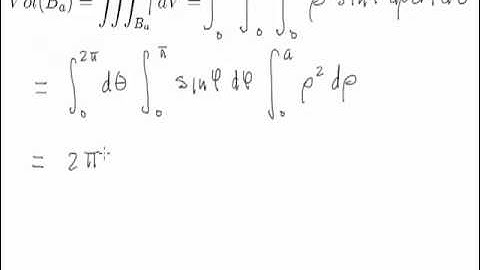 Vol(B_a) = ∭_{B_a} 1 dV = ∫_0 ∫_0 ∫_0 ρ
= ∫_0^{2π} dθ ∫_0^π sinφ dφ ∫_0^a ρ² dρ
= 2π